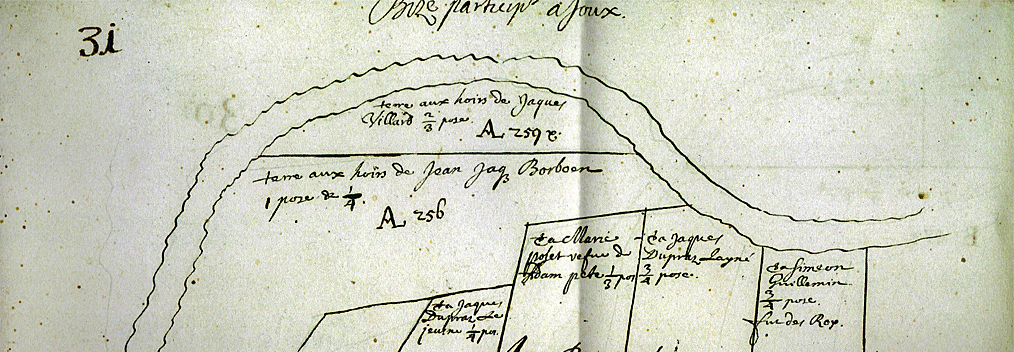 Bize particip^t a Joux.
31
terre aux hoirs de Jaques
Villard 2/3 pose.
A 259
terre aux hoirs de Jean Jaq Borboen
1 pose de 1/4
A 256
a Marie
polet vefve de
Adam pete 1/3 pos
a Jaques
Dupraz Layné
3/4 pose.
a Simeon
Guillemin
3/4 pose.
fut des Roy.
a Jaques
Dupraz Le
jeusne 1/4 po.